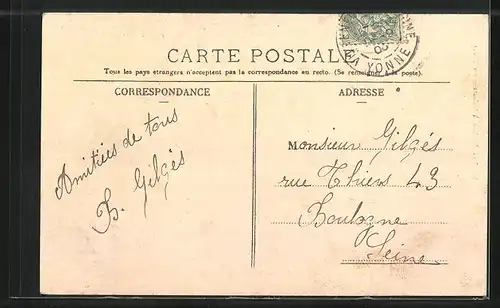 CARTE POSTALE
Tous les pays étrangers n'acceptent pas la correspondance au recto. (Se renseigner à la poste).
CORRESPONDANCE
ADRESSE
YONNE
Amitiés de tous
B. Gilgés
MONSIEUR Gilgés
rue Thiers 43
Boulogne
Seine